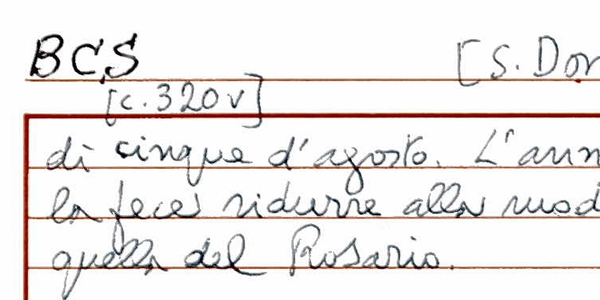 BCS [S. Dor
[c. 320v]
di cinque d'agosto. L'ann
la fece ridurre alla mod
quella del Rosario.